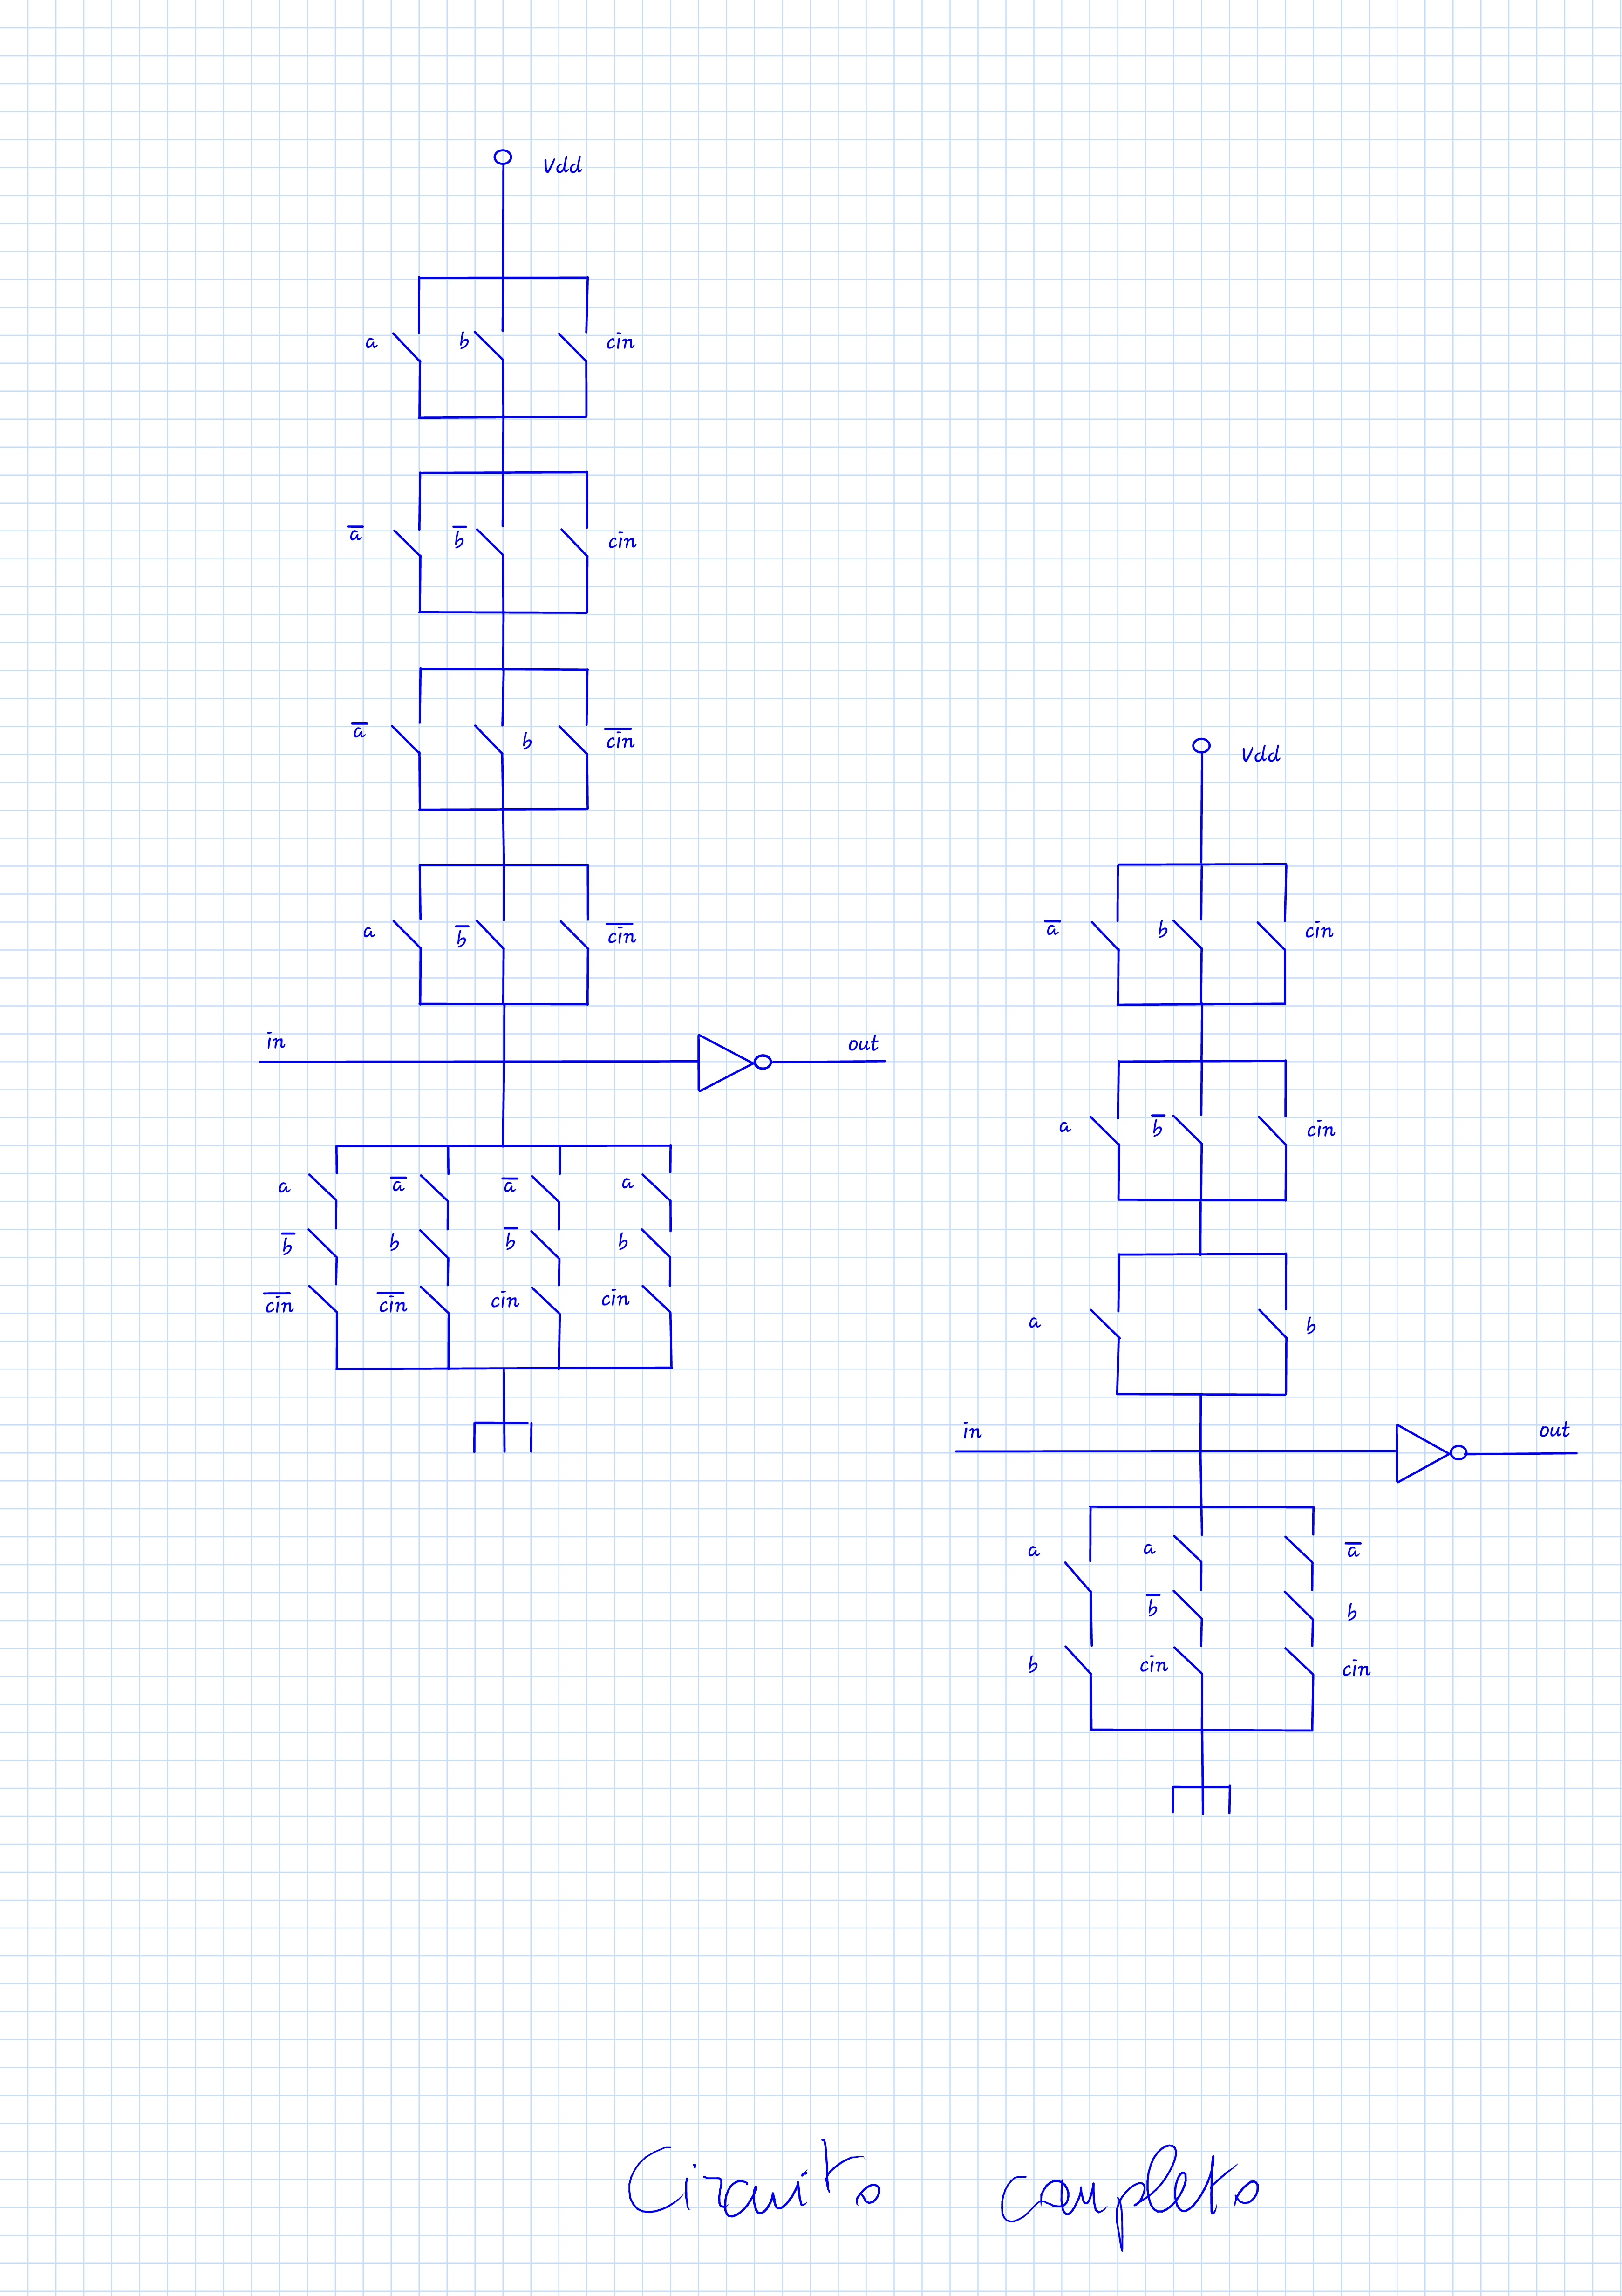 Vdd
a b cin
a̅ b̅ cin
a̅ b c̅i̅n̅
a b̅ c̅i̅n̅
in out
a a̅ a̅ a
b̅ b b̅ b
c̅i̅n̅ c̅i̅n̅ cin cin
Vdd
a̅ b cin
a b̅ cin
a b
in out
a a a̅
b̅ b
b cin cin
Circuito completo